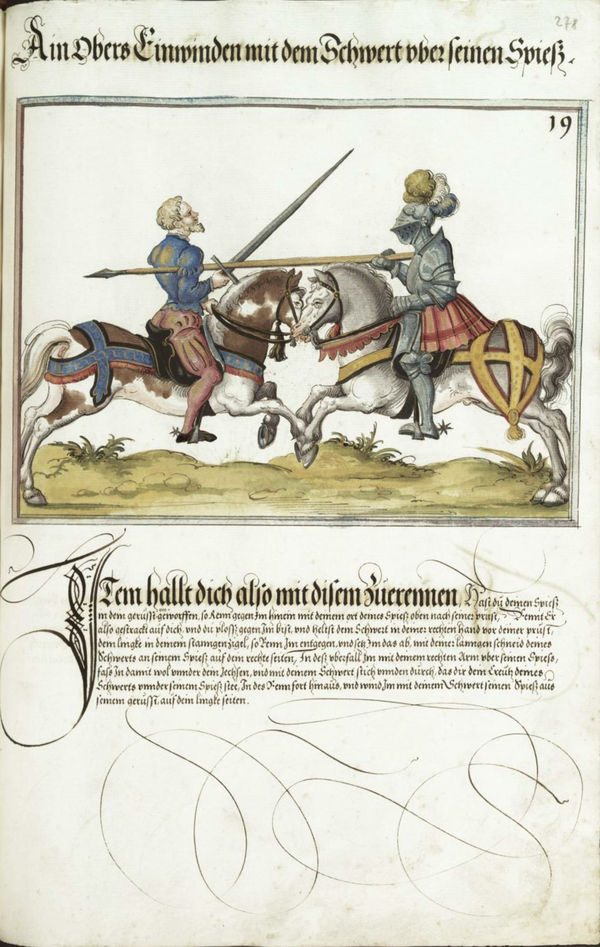 278
Ain Obers Einwinden mit dem Schwert vber seinen Spieß.
19
ITem hallt dich also mit disem Zuerennen Hast du deinen Spieß
in dem gerüsst geworffen, so Renn gegen Im hinein mit deinem ort deines Spieß oben nach seiner prust, Rennt Er
also gestrackt auf dich, vnd du ploss gegen Im bist, vnd heltest dein Schwert in deiner rechten Hand vor deiner prüst,
dein lingke in deinem stanngen zigel, so Renn Im entgegen, vnd setz Im das ab, mit deiner lanngen schneid deines
Schwerts an seinem Spieß auf dein rechte seiten, In deß vberfall Im mit deinem rechten Arm vber seinen Spieß,
fass In damit wol vnnder dein Iechsen, vnd mit deinem Schwert stich vnnden durch, das dir dein Creütz deines
Schwerts vnnder seinem Spieß stee, In des Renn fort hinaus, vnd wind Im mit deinem Schwert seinen Spieß aus
seinem gerüsst, auf dein lingke seiten.